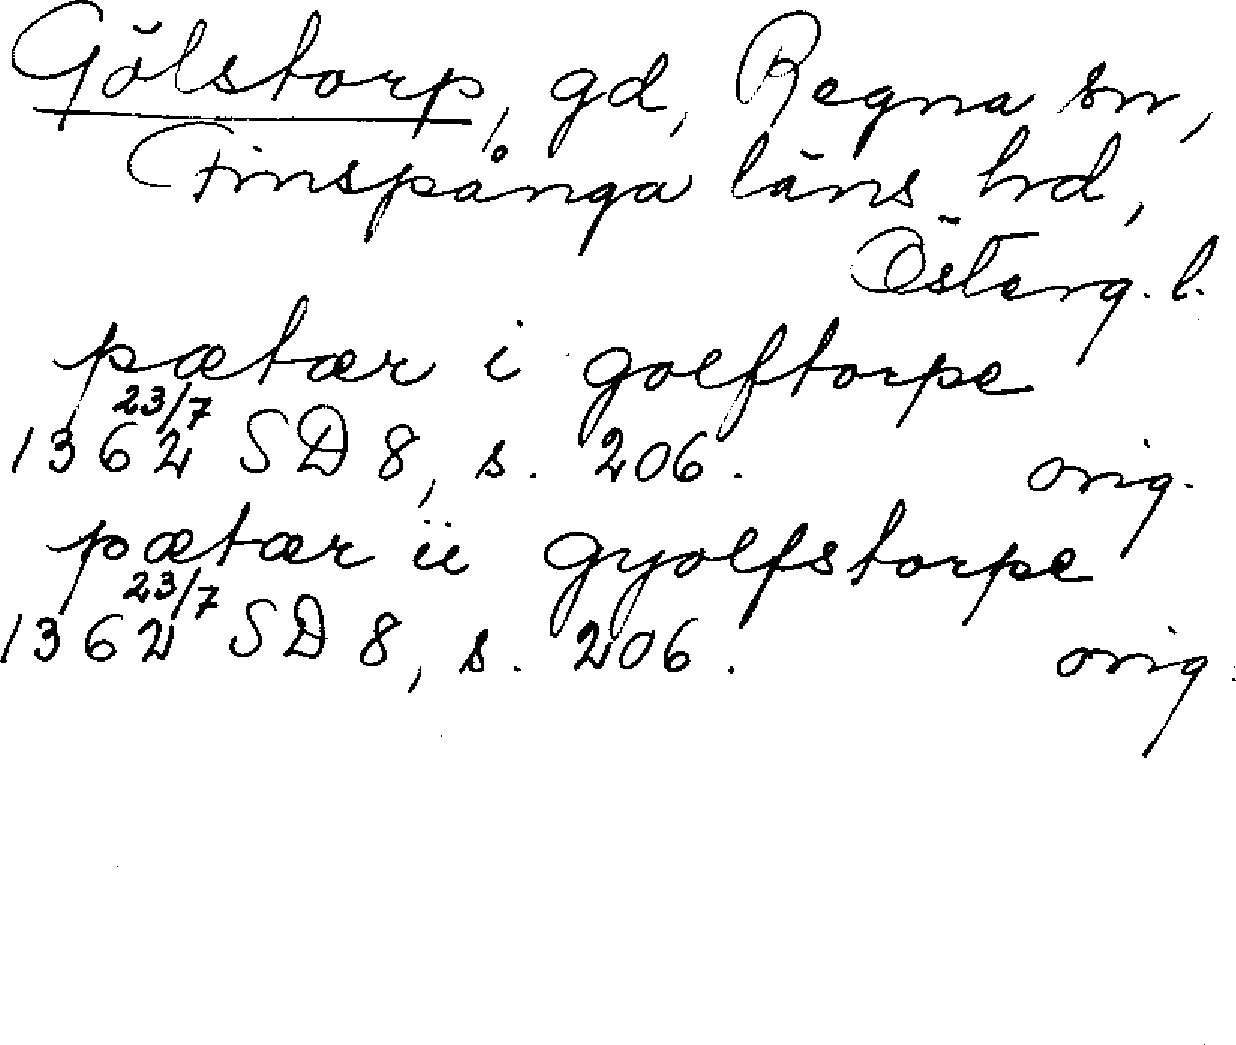 Gölstorp, gd, Regna sn,
Finspånga läns hd,
Österg. l.
pætær i golftorpe
1362 23/7 SD 8, s. 206. orig.
pætær ii gyolfstorpe
1362 23/7 SD 8, s. 206. orig.